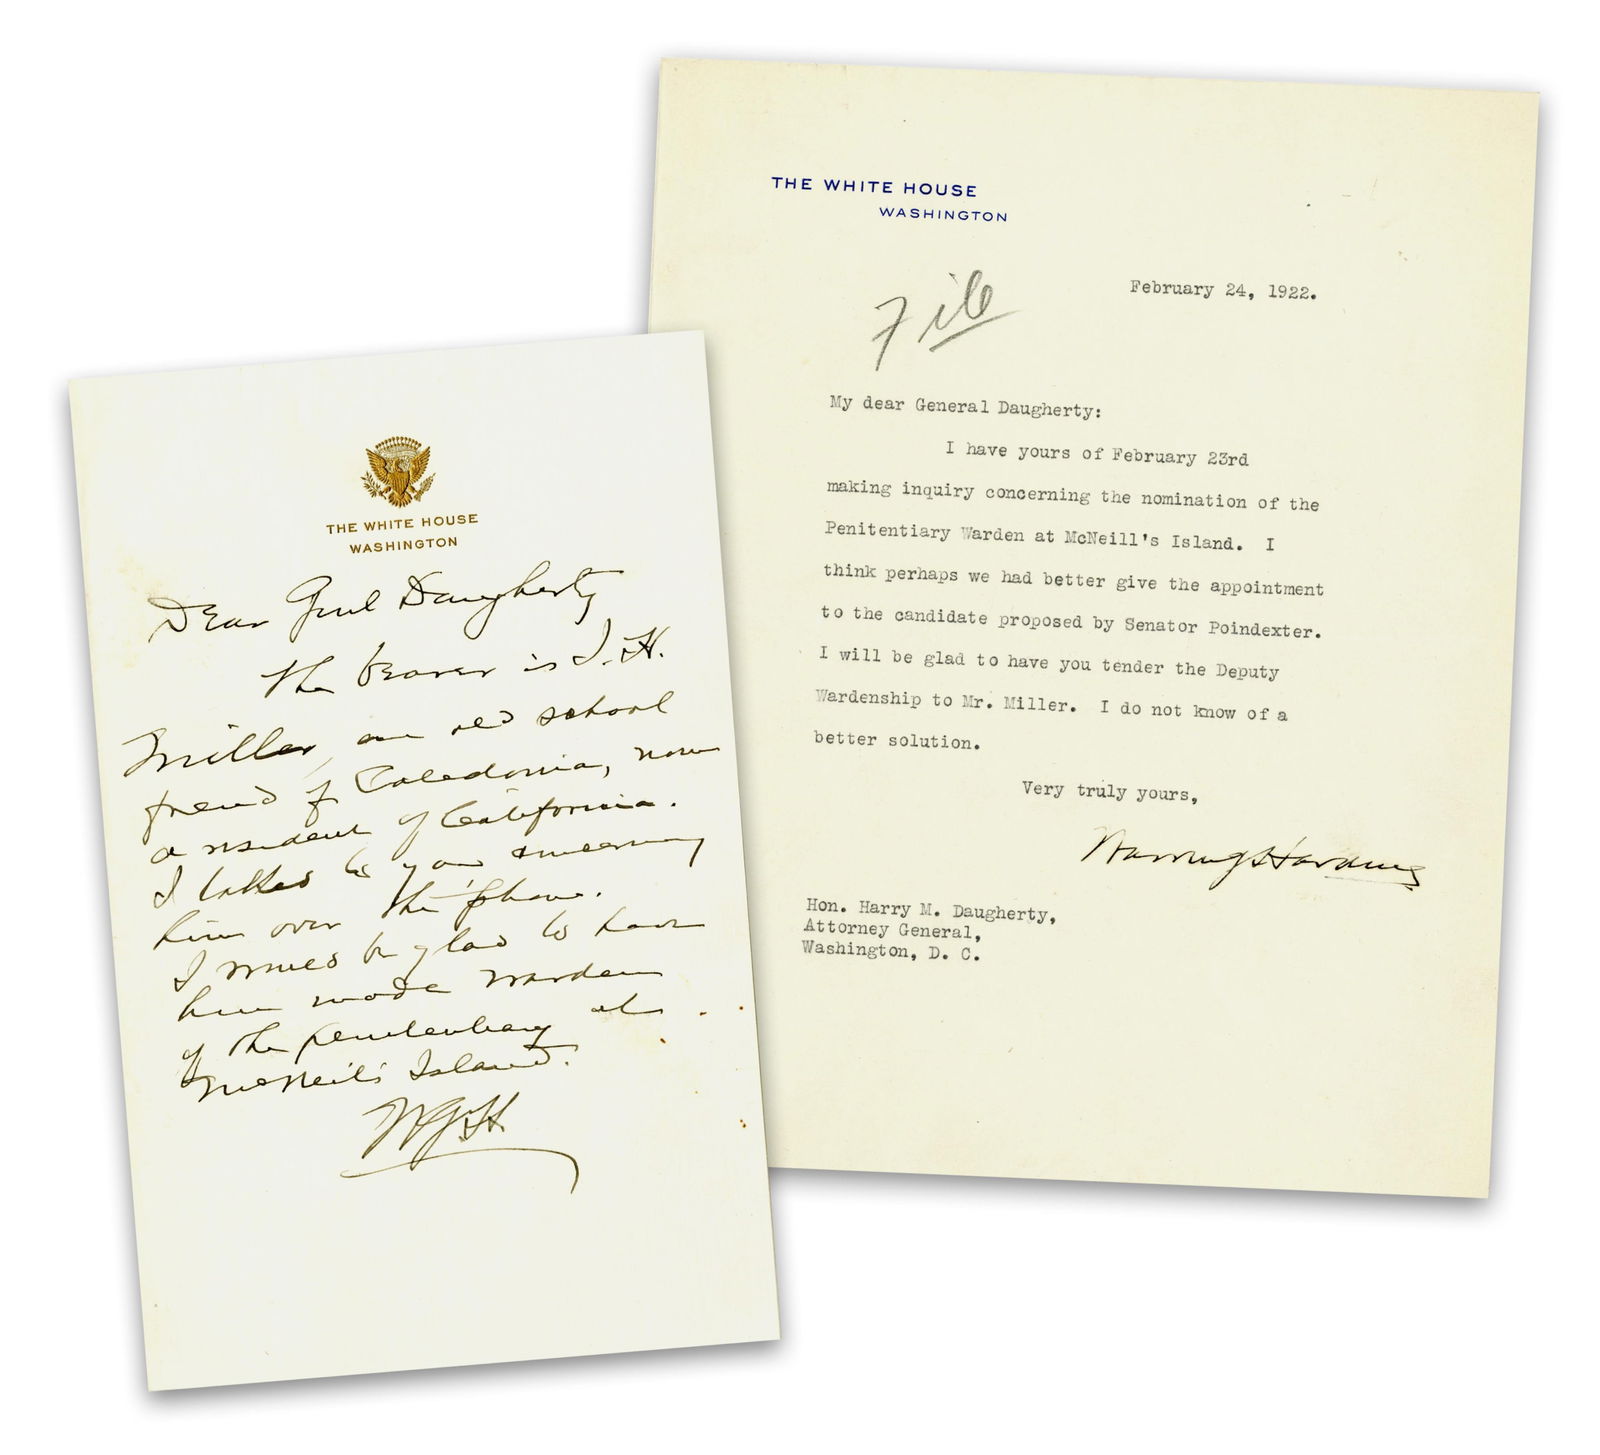 THE WHITE HOUSE
WASHINGTON
Dear Genl Daugherty
The bearer is J. H.
Miller, an old school
friend of Caledonia, now
a resident of California.
I talked to you concerning
him over the 'phone.
I would be glad to have
him made warden
of the penitentiary at
McNeil's Island.
WGH
THE WHITE HOUSE
WASHINGTON
File
February 24, 1922.
My dear General Daugherty:
I have yours of February 23rd
making inquiry concerning the nomination of the
Penitentiary Warden at McNeill's Island. I
think perhaps we had better give the appointment
to the candidate proposed by Senator Poindexter.
I will be glad to have you tender the Deputy
Wardenship to Mr. Miller. I do not know of a
better solution.
Very truly yours,
Warren G Harding
Hon. Harry M. Daugherty,
Attorney General,
Washington, D. C.